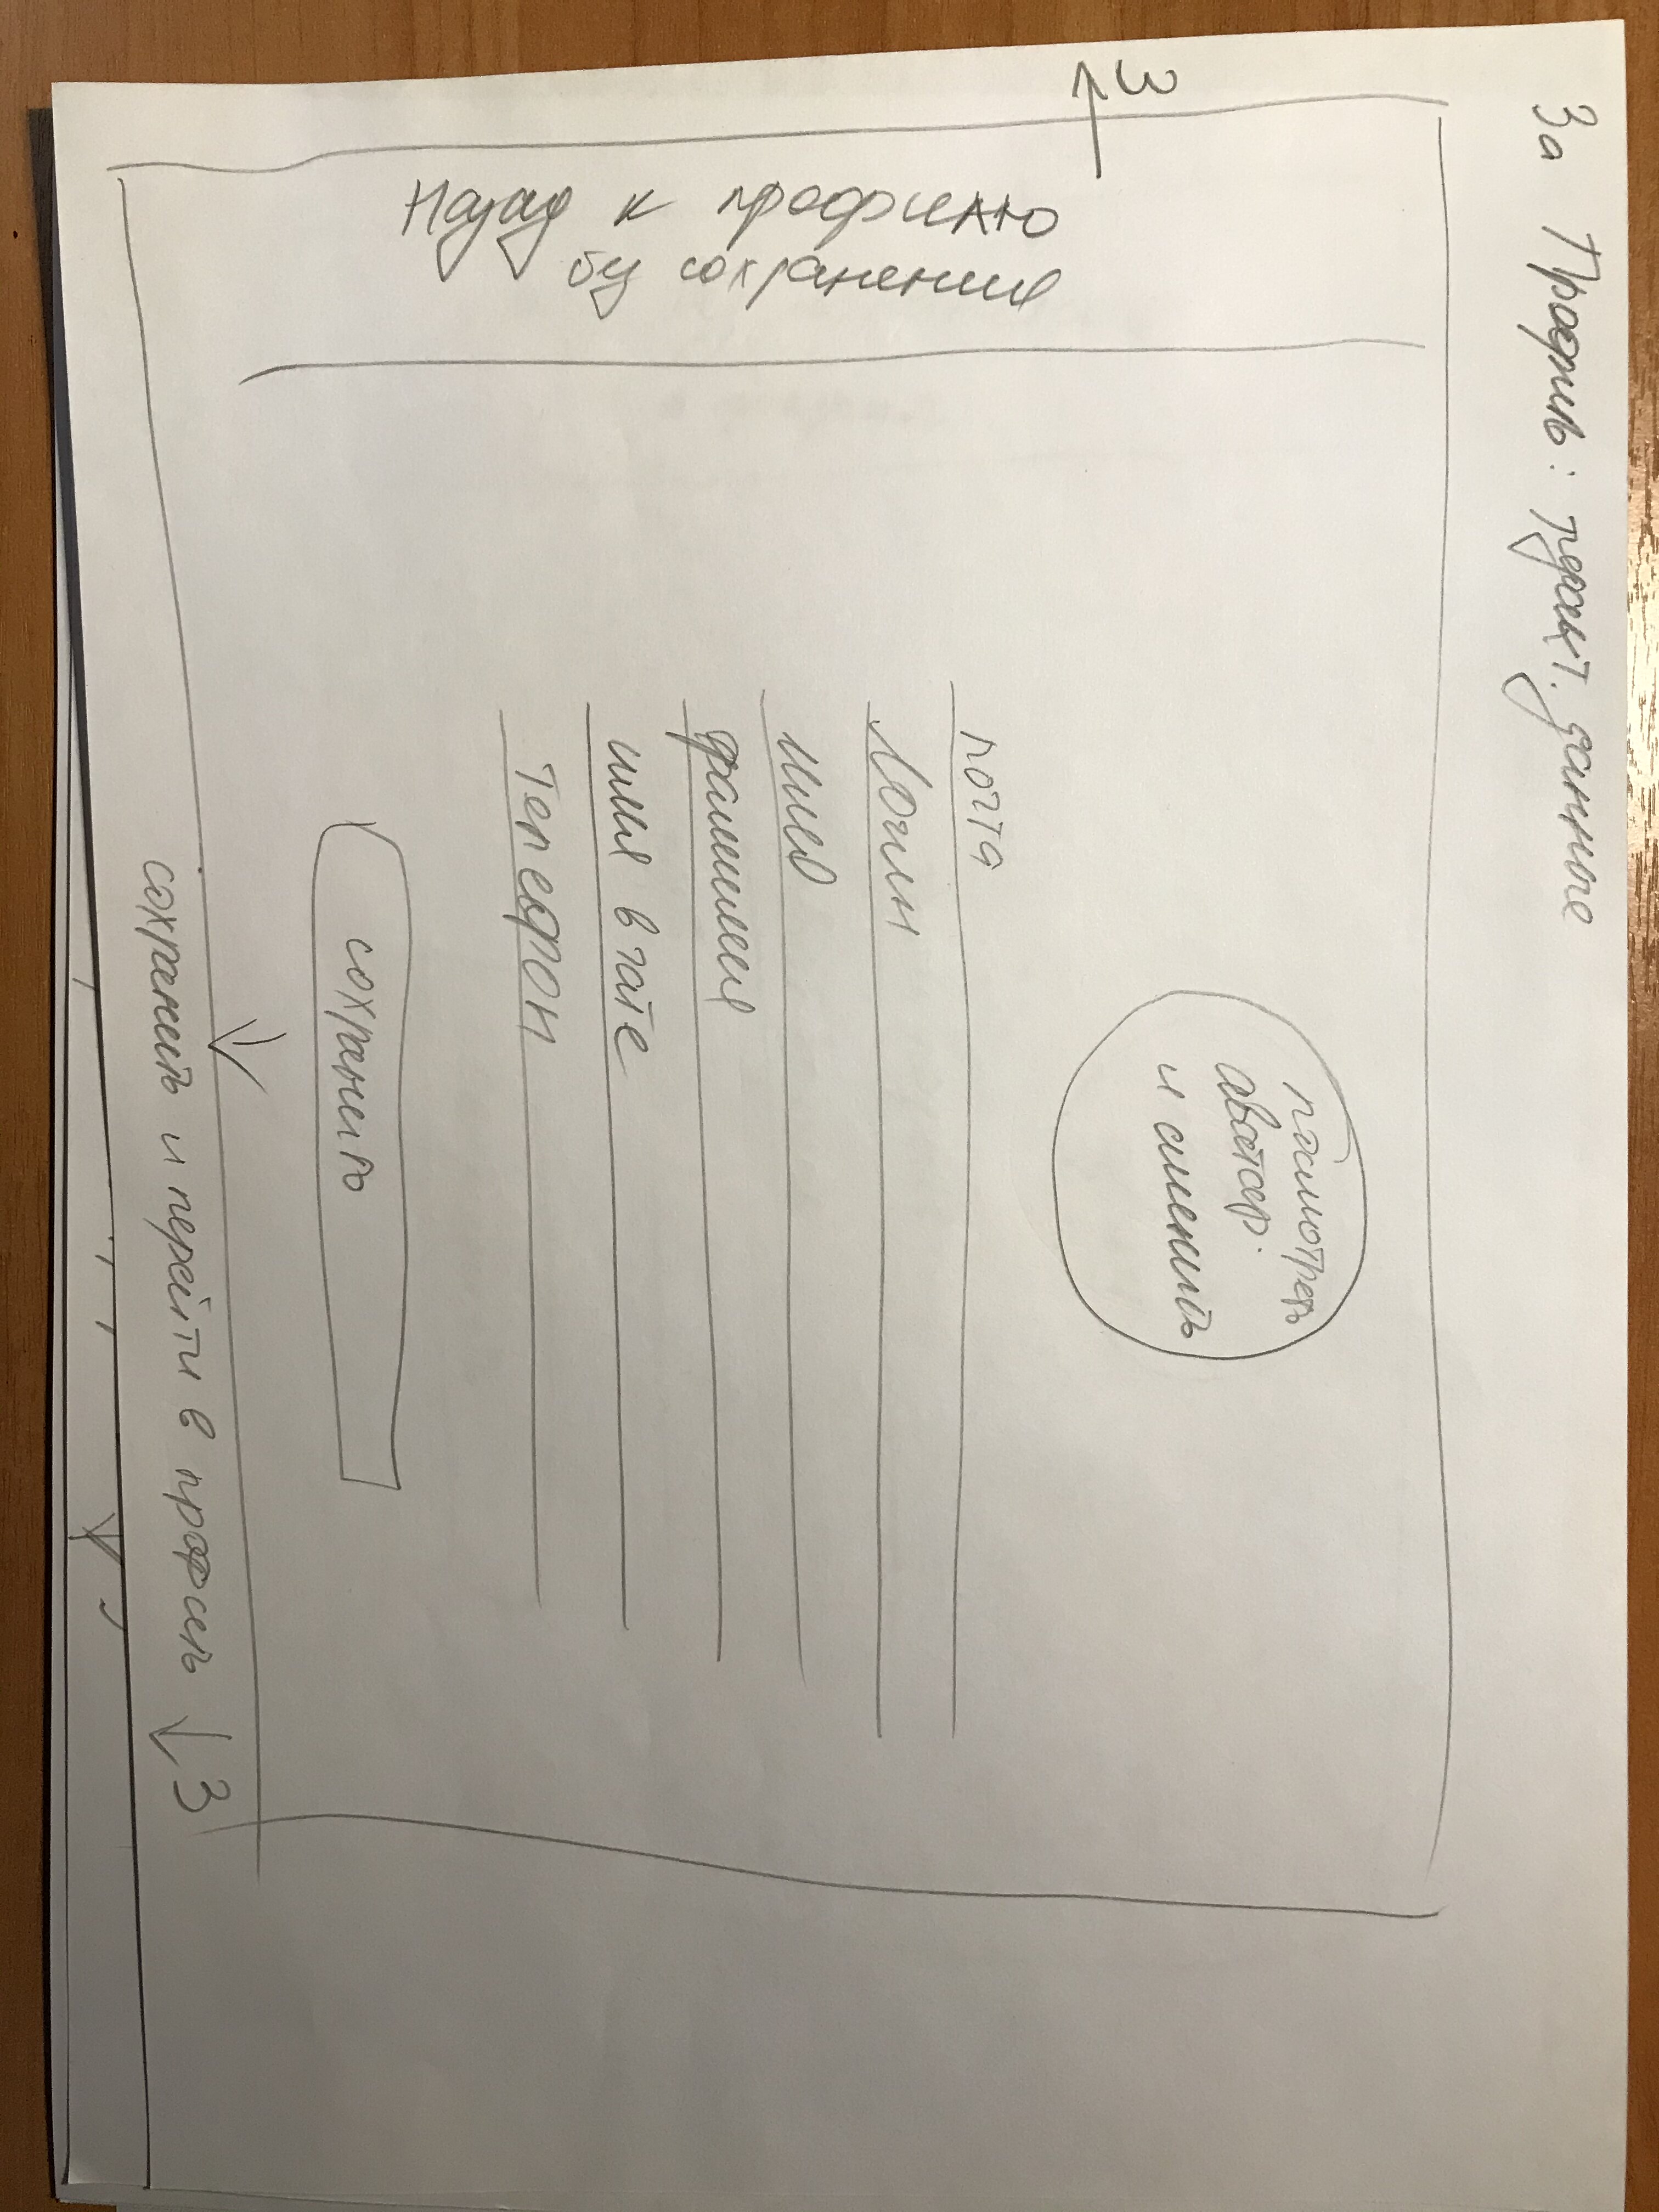 3а Профиль: редакт. данные
← 3
Назад к профилю
без сохранения
посмотреть
аватар.
и сменить
почта
Логин
имя
фамилия
имя в чате
Телефон
сохранить
сохранить и перейти в профиль → 3